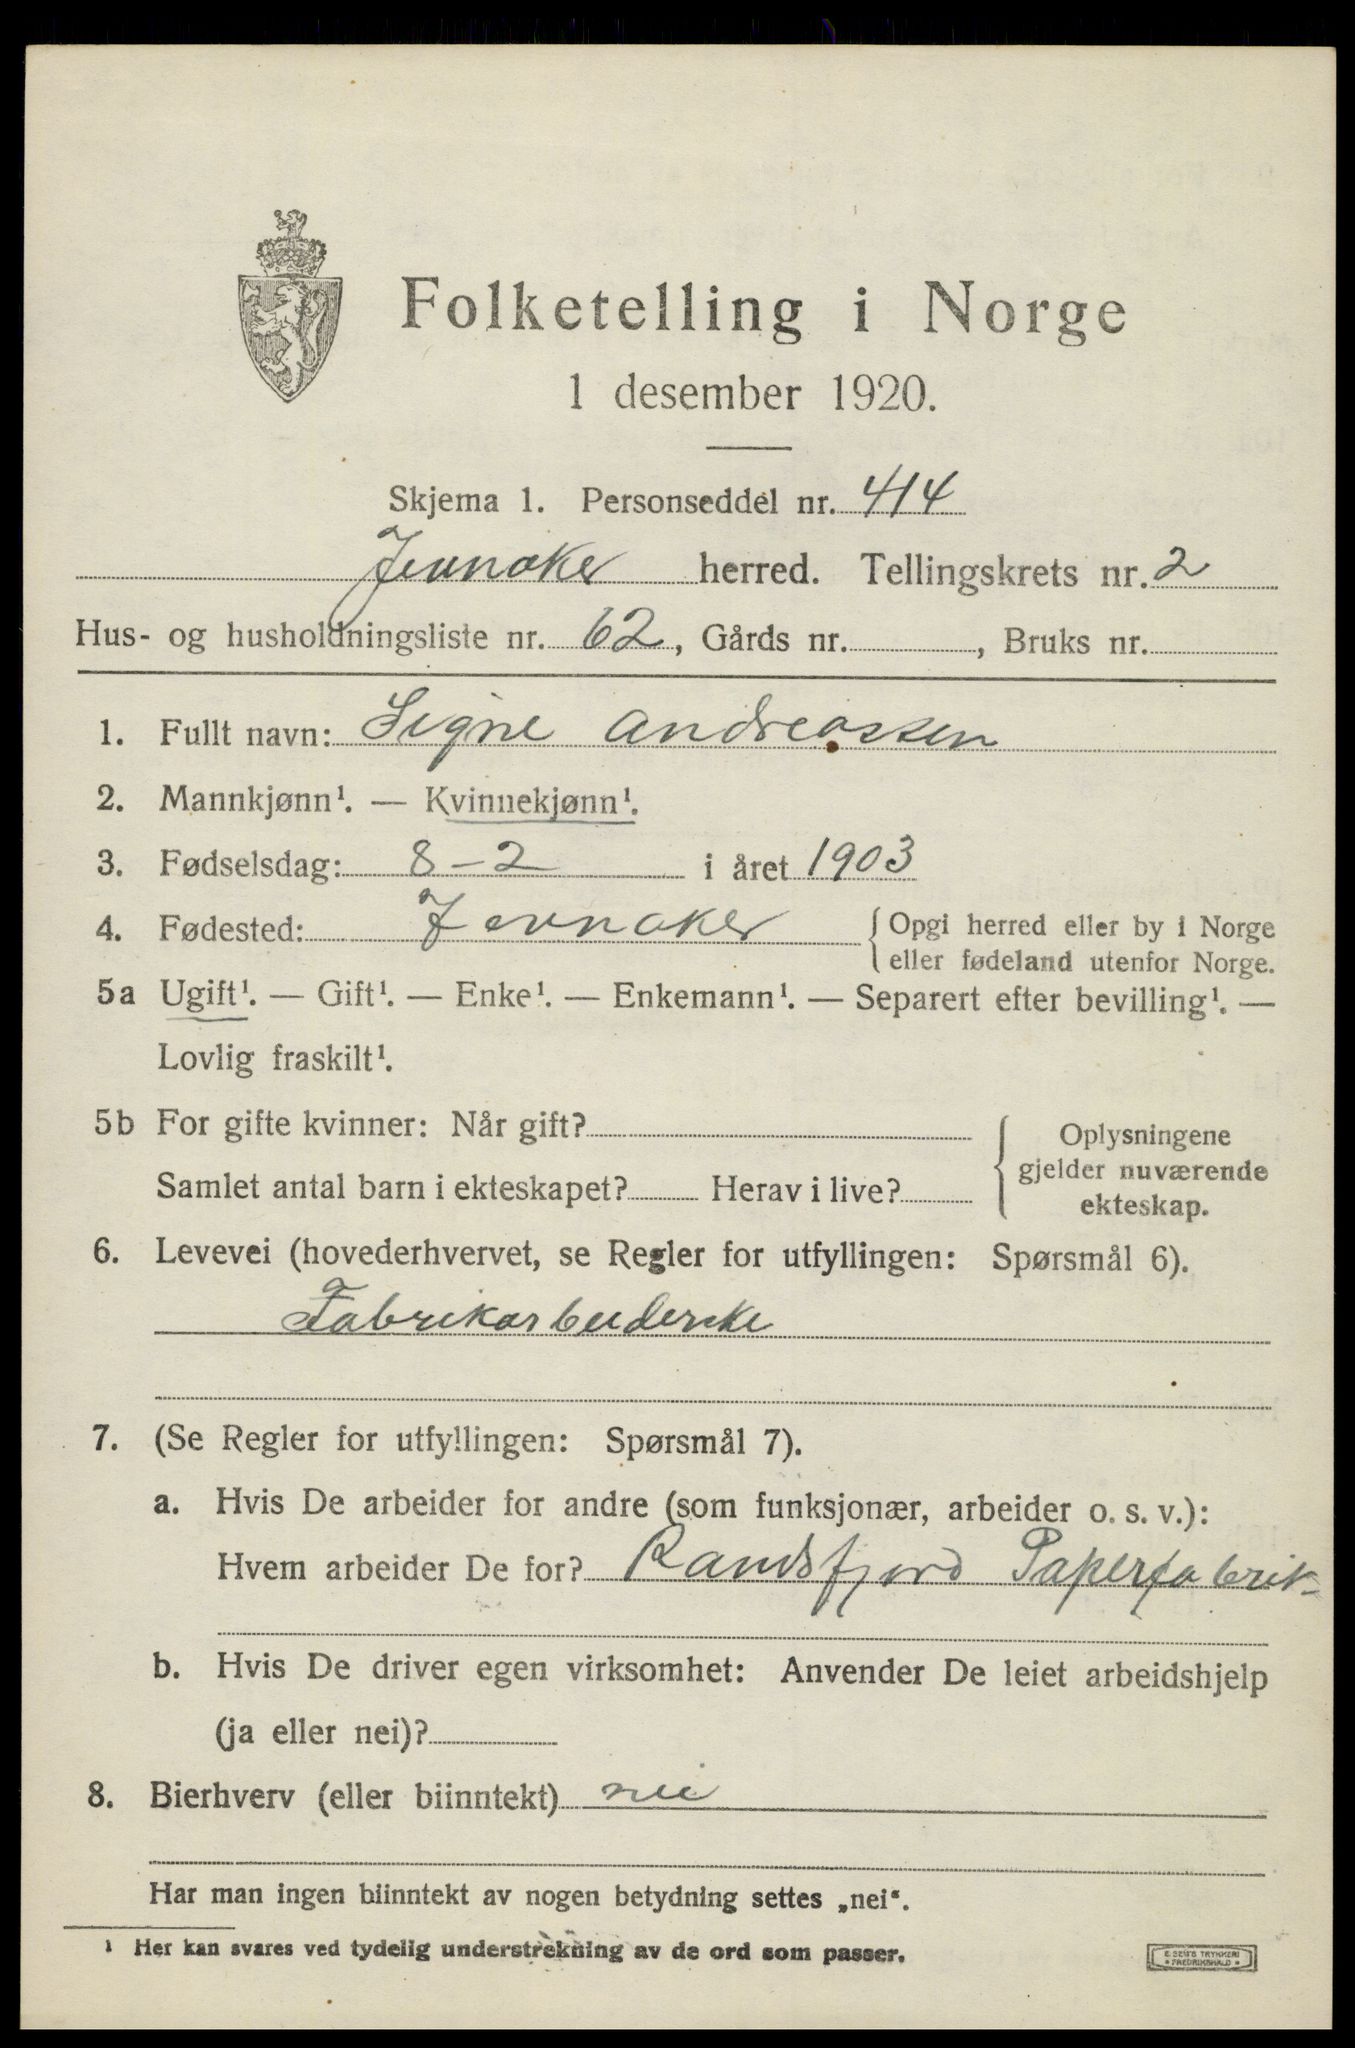 Folketelling i Norge
1 desember 1920.
Skjema 1. Personseddel nr. 414
Jevnaker herred. Tellingskrets nr. 2
Hus- og husholdningsliste nr. 62, Gårds nr. , Bruks nr.
1. Fullt navn: Signe Andreassen
2. Mannkjønn¹. — Kvinnekjønn¹.
3. Fødselsdag: 8-2 i året 1903
4. Fødested: Jevnaker { Opgi herred eller by i Norge
eller fødeland utenfor Norge.
5a Ugift¹. — Gift¹. — Enke¹. — Enkemann¹. — Separert efter bevilling¹. —
Lovlig fraskilt¹.
5b For gifte kvinner: Når gift?
Samlet antal barn i ekteskapet? Herav i live?
{ Oplysningene
gjelder nuværende
ekteskap.
6. Levevei (hovederhvervet, se Regler for utfyllingen: Spørsmål 6).
Fabrikarbeiderske
7. (Se Regler for utfyllingen: Spørsmål 7).
a. Hvis De arbeider for andre (som funksjonær, arbeider o. s. v.):
Hvem arbeider De for? Randsfjord Paperfabrik
b. Hvis De driver egen virksomhet: Anvender De leiet arbeidshjelp
(ja eller nei)?
8. Bierhverv (eller biinntekt) nei
Har man ingen biinntekt av nogen betydning settes „nei“.
¹ Her kan svares ved tydelig understrekning av de ord som passer.
E. SEM'S TRYKKERI
* FREDRIKSHALD *